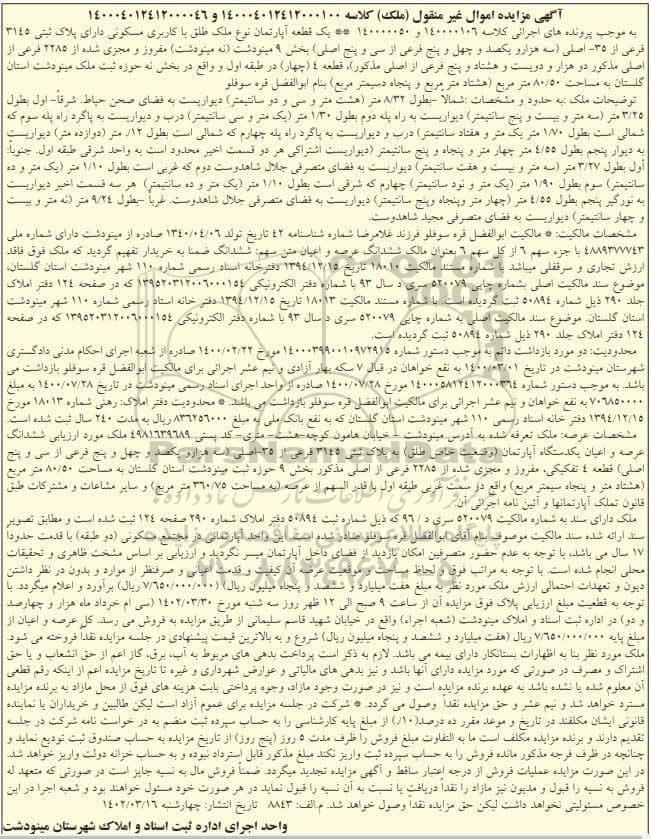 آگهی مزایده اموال غیر منقول (ملک) کلاسه ۱۴۰۰۰۴۰۱۲۴۱۲۰۰۰۱۰۰ و ۱۴۰۰۰۴۰۱۲۴۱۲۰۰۰۰۴۶
به موجب پرونده های اجرائی کلاسه ۱۴۰۰۰۰۱۰۶ و ۱۴۰۰۰۰۰۵۰ ** یک قطعه آپارتمان نوع ملک طلق با کاربری مسکونی دارای پلاک ثبتی ۳۱۴۵
فرعی از ۳۵- اصلی (سه هزارو یکصد و چهل و پنج فرعی از سی و پنج اصلی) بخش ۹ مینودشت (نه مینودشت) مفروز و مجزی شده از ۲۲۸۵ فرعی از
اصلی مذکور دو هزار و دویست و هشتاد و پنج فرعی از اصلی مذکور)، قطعه ۴ (چهار) در طبقه اول و واقع در بخش نه حوزه ثبت ملک مینودشت استان
گلستان به مساحت ۸۰/۵۰ متر مربع (هشتاد متر مربع و پنجاه دسیمتر مربع) بنام ابوالفضل قره سوفلو
توضیحات ملک :به حدود و مشخصات :شمالاً -بطول ۸/۳۲ متر (هشت متر و سی و دو سانتیمتر) دیواریست به فضای صحن حیاط. شرقاً- اول بطول
۳/۲۵ متر (سه متر و بیست و پنج سانتیمتر) دیواریست به راه پله دوم بطول ۱/۳۰ متر (یک متر و سی سانتیمتر) درب و دیواریست به پاگرد راه پله سوم که
شمالی است بطول ۱/۷۰ متر یک متر و هفتاد سانتیمتر) درب و دیواریست به پاگرد راه پله چهارم که شمالی است بطول ۱۲/. متر (دوازده متر) دیواریست
به دیوار پنجم بطول ۴/۵۵ متر چهار متر و پنجاه و پنج سانتیمتر) دیواریست اشتراکی هر دو قسمت اخیر محدود است به واحد شرقی طبقه اول. جنوباً:
اول بطول ۳/۲۷ متر (سه متر و بیست و هفت سانتیمتر) دیواریست به فضای متصرفی جلال شاهدوست دوم که غربی است بطول ۱/۱۰ متر (یک متر و ده
سانتیمتر) سوم بطول ۱/۹۰ متر (یک متر و نود سانتیمتر) چهارم که شرقی است بطول ۱/۱۰ متر (یک متر و ده سانتیمتر) هر سه قسمت اخیر دیواریست
به نورگیر پنجم بطول ۴/۵۵ متر (چهار متر وپنجاه وپنج سانتیمتر) دیواریست به فضای متصرفی جلال شاهدوست. غرباً -بطول ۹/۲۴ متر (نه متر و بیست
و چهار سانتیمتر) دیواریست به فضای متصرفی مجید شاهدوست.
مشخصات مالکیت: * مالکیت ابوالفضل قره سوفلو فرزند غلامرضا شماره شناسنامه ۴۲ تاریخ تولد ۱۳۴۰/۰۴/۰۶ صادره از مینودشت دارای شماره ملی
۴۸۸۹۳۷۷۷۴۳ با جزء سهم ۶ از کل سهم ۶ بعنوان مالک ششدانگ عرصه و اعیان متن سهم: ششدانگ ضمنا به خریدار تفهیم گردید که ملک فوق فاقد
ارزش تجاری و سرقفلی میباشد با شماره مستند مالکیت ۱۸۰۱۰ تاریخ ۱۳۹۴/۱۲/۱۵ دفترخانه اسناد رسمی شماره ۱۱۰ شهر مینودشت استان گلستان،
موضوع سند مالکیت اصلی بشماره چاپی ۵۲۰۰۷۹ سری د سال ۹۳ با شماره دفتر الکترونیکی ۱۳۹۵۲۰۳۱۲۰۰۶۰۰۰۱۵۴ که در صفحه ۱۲۴ دفتر املاک
جلد ۲۹۰ ذیل شماره ۵۰۸۹۴ ثبت گردیده است. با شماره مستند مالکیت ۱۸۰۱۳ تاریخ ۱۳۹۴/۱۲/۱۵ دفتر خانه اسناد رسمی شماره ۱۱۰ شهر مینودشت
استان گلستان. موضوع سند مالکیت اصلی به شماره چاپی ۵۲۰۰۷۹ سری د سال ۹۳ با شماره دفتر الکترونیکی ۱۳۹۵۲۰۳۱۲۰۰۶۰۰۰۱۵۴ که در صفحه
۱۲۴ دفتر املاک جلد ۲۹۰ ذیل شماره ۵۰۸۹۴ ثبت گردیده است.
محدودیت: دو مورد بازداشت دائم به موجب دستور شماره ۱۴۰۰۰۳۹۹۰۰۱۰۹۷۲۹۱۵ مورخ ۱۴۰۰/۰۲/۲۲ صادره از شعبه اجرای احکام مدنی دادگستری
شهرستان مینودشت در تاریخ ۱۴۰۰/۰۳/۰۱ به نفع خواهان در قبال ۷ سکه بهار آزادی و نیم عشر اجرائی برای مالکیت ابوالفضل قره سوفلو بازداشت می
باشد. به موجب دستور شماره ۱۴۰۰۰۵۸۱۲۴۱۲۰۰۰۳۶۴ مورخ ۱۴۰۰/۰۷/۲۸ صادره از واحد اجرای اسناد رسمی مینودشت در تاریخ ۱۴۰۰/۰۷/۲۸ به مبلغ
۷۰۶۸۵۰۰۰۰ به نفع خواهان و نیم عشر اجرائی برای مالکیت ابوالفضل قره سوفلو بازداشت می باشد. * محدودیت دفتر املاک: رهنی شماره ۱۸۰۱۳ مورخ
۱۳۹۴/۱۲/۱۵ دفتر خانه اسناد رسمی ۱۱۰ شهر مینودشت استان گلستان که به نفع بانک ملی به مبلغ ۸۳۶۲۵۶۰۰۰ ریال به مدت ۲۴۰ سال ثبت شده است.
مشخصات عرصه: ملک تعرفه شده به آدرس مینودشت – خیابان هامون کوچه-هشت- متری- کد پستی ۴۹۸۱۶۳۹۶۸۹ ملک مورد ارزیابی ششدانگ
عرصه و اعیان یکدستگاه آپارتمان (وضعیت خاص طلق) به پلاک ثبتی ۳۱۴۵ فرعی از ۳۵-اصلی (سه هزارو یکصد و چهل و پنج فرعی از سی و پنج
اصلی) قطعه ۴ تفکیکی، مفروز و مجزی شده از ۲۲۸۵ فرعی از اصلی مذکور بخش ۹ حوزه ثبت مینودشت استان گلستان به مساحت ۸۰/۵۰ متر مربع
(هشتاد متر و پنجاه سیمتر مربع) واقع در سمت غربی طبقه اول با قدر السهم از عرصه (به مساحت ۳۶۰/۷۵ متر مربع) و سایر مشاعات و مشترکات طبق
قانون تملک آپارتمانها و آئین نامه اجرائی آن.
ملک دارای سند به شماره مالکیت ۵۲۰۰۷۹ سری د / ۹۶ که ذیل شماره ثبت ۵۰۸۹۴ دفتر املاک شماره ۲۹۰ صفحه ۱۲۴ ثبت شده است و مطابق تصویر
سند ارائه شده سند مالکیت موصوف بنام آقای ابوالفضل قره سوفلو صادر شده است. ملک واحد آپارتمانی در مجتمع مسکونی (دو طبقه) با قدمت حدودا
۱۷ سال می باشد، با توجه به عدم حضور متصرفین امکان بازدید از فضای داخل آپارتمان میسر نگردید و ارزیابی بر اساس مشخث ظاهری و تحقیقات
محلی انجام شده است. با توجه به مراتب فوق و لحاظ مساحت و موقعیت عرصه آن کیفیت و قدمت اعیانی و صرفنظر از موارد و بدون در نظر داشتن
دیون و تعهدات احتمالی ارزش ملک مورد نظر به مبلغ هفت میلیارد و ششصد و پنجاه میلیون ریال) (۷/۶۵۰/۰۰۰/۰۰۰) ریال) برآورد و اعلام میگردد. با
توجه به قطعیت مبلغ ارزیابی پلاک فوق مزایده آن از ساعت ۹ صبح الی ۱۲ ظهر روز سه شنبه مورخ ۱۴۰۲/۰۳/۳۰ (سی ام خرداد ماه هزار و چهارصد
و دو) در اداره ثبت اسناد و املاک مینودشت (شعبه اجراء) واقع در خیابان شهید قاسم سلیمانی از طریق مزایده به فروش می رسد. کل عرصه و اعیان از
مبلغ پایه ۷/۶۵۰/۰۰۰/۰۰۰ ریال (هفت میلیارد و ششصد و پنجاه میلیون ریال) شروع و به بالاترین قیمت پیشنهادی در جلسه مزایده نقدا فروخته می شود.
ملک مورد نظر بنا به اظهارات بستانکار دارای بیمه می باشد. لازم به ذکر است پرداخت بدهی های مربوط به آب، برق، گاز اعم از حق انشعاب و یا حق
اشتراک و مصرف در صورتی که مورد مزایده دارای آنها باشد و نیز بدهی های مالیاتی و عوارض شهرداری و غیره تا تاریخ مزایده اعم از اینکه رقم قطعی
آن معلوم شده یا نشده باشد به عهده برنده مزایده است و نیز در صورت وجود مازاد، وجوه پرداختی بابت هزینه های فوق از محل مازاد به برنده مزایده
مسترد خواهد شد و نیم عشر و حق مزایده نقدا وصول می گردد. * شرکت در جلسه مزایده برای عموم آزاد است لیکن طالبین و خریداران یا نماینده
قانونی ایشان مکلفند در تاریخ و موعد مقرر ده درصد(۱۰٪) از مبلغ پایه کارشناسی را به حساب سپرده ثبت منضم به در خواست نامه شرکت در جلسه
تقدیم دارند و برنده مزایده مکلف است ما به التفاوت مبلغ فروش را ظرف مدت ۵ روز (پنج روز) از تاریخ مزایده به حساب صندوق ثبت تودیع نماید و
چنانچه در ظرف فرجه مذکور مانده فروش را به حساب سپرده ثبت واریز نکند مبلغ مذکور قابل استرداد نبوده و به حساب خزانه دولت واریز خواهد شد.
در این صورت مزایده عملیات فروش از درجه اعتبار ساقط و آگهی مزایده تجدید میگردد. ضمناً فروش مال به نسیه جایز است در صورتی که متعهد له
فروش به نسیه را قبول و مدیون نیز مازاد را نقداً دریافت یا نسبت به آن نسیه را قبول نماید در هر صورت خود مسئول خواهند بود و شعبه اجرا در این
خصوص مسئولیتی نخواهد داشت لیکن حق مزایده نقداً وصول خواهد شد. م.الف: ۸۸۴۳ تاریخ انتشار: چهارشنبه ۱۴۰۲/۰۳/۱۶
واحد اجرای اداره ثبت اسناد و املاک شهرستان مینودشت